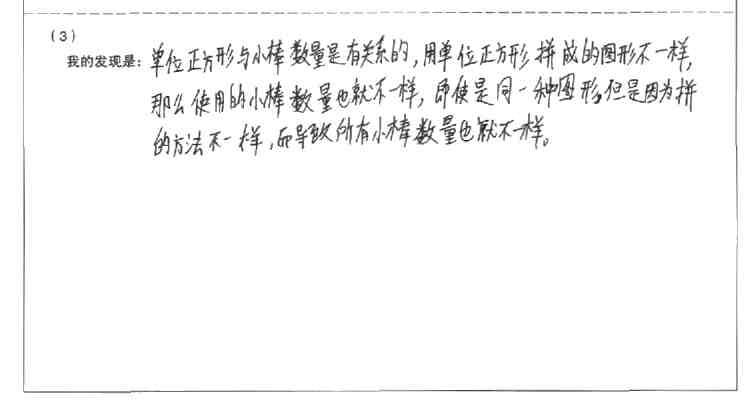 (3)
我的发现是：单位正方形与小棒数量是有关系的，用单位正方形拼成的图形不一样，
那么使用的小棒数量也就不一样，即使是同一种图形，但是因为拼
的方法不一样，而导致所有小棒数量也就不一样。